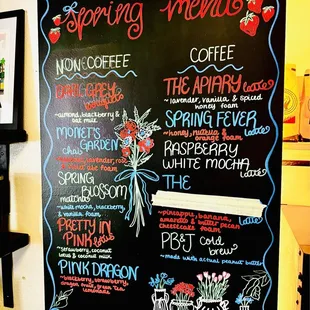 Spring Menu
NON COFFEE
EARL GREY
~almond, blackberry &
oat milk
MONET'S
chai
GARDEN
lavender, rose
SPRING
BLOSSOM
matcha
~white mocha, blackberry,
& vanilla foam
PRETTY IN
PINK
~strawberry, coconut
& coconut milk
PINK DRAGON
~strawberry,
dragon fruit, green tea
lemonade
COFFEE
THE APIARY latte
~lavender, vanilla & spiced
honey foam
SPRING FEVER
latte
~honey, nutella &
orange foam
RASPBERRY
WHITE MOCHA
latte
THE
latte
~pineapple, banana,
amaretto &
cheesecake foam
PB&J cold
brew
~made with actual peanut butter